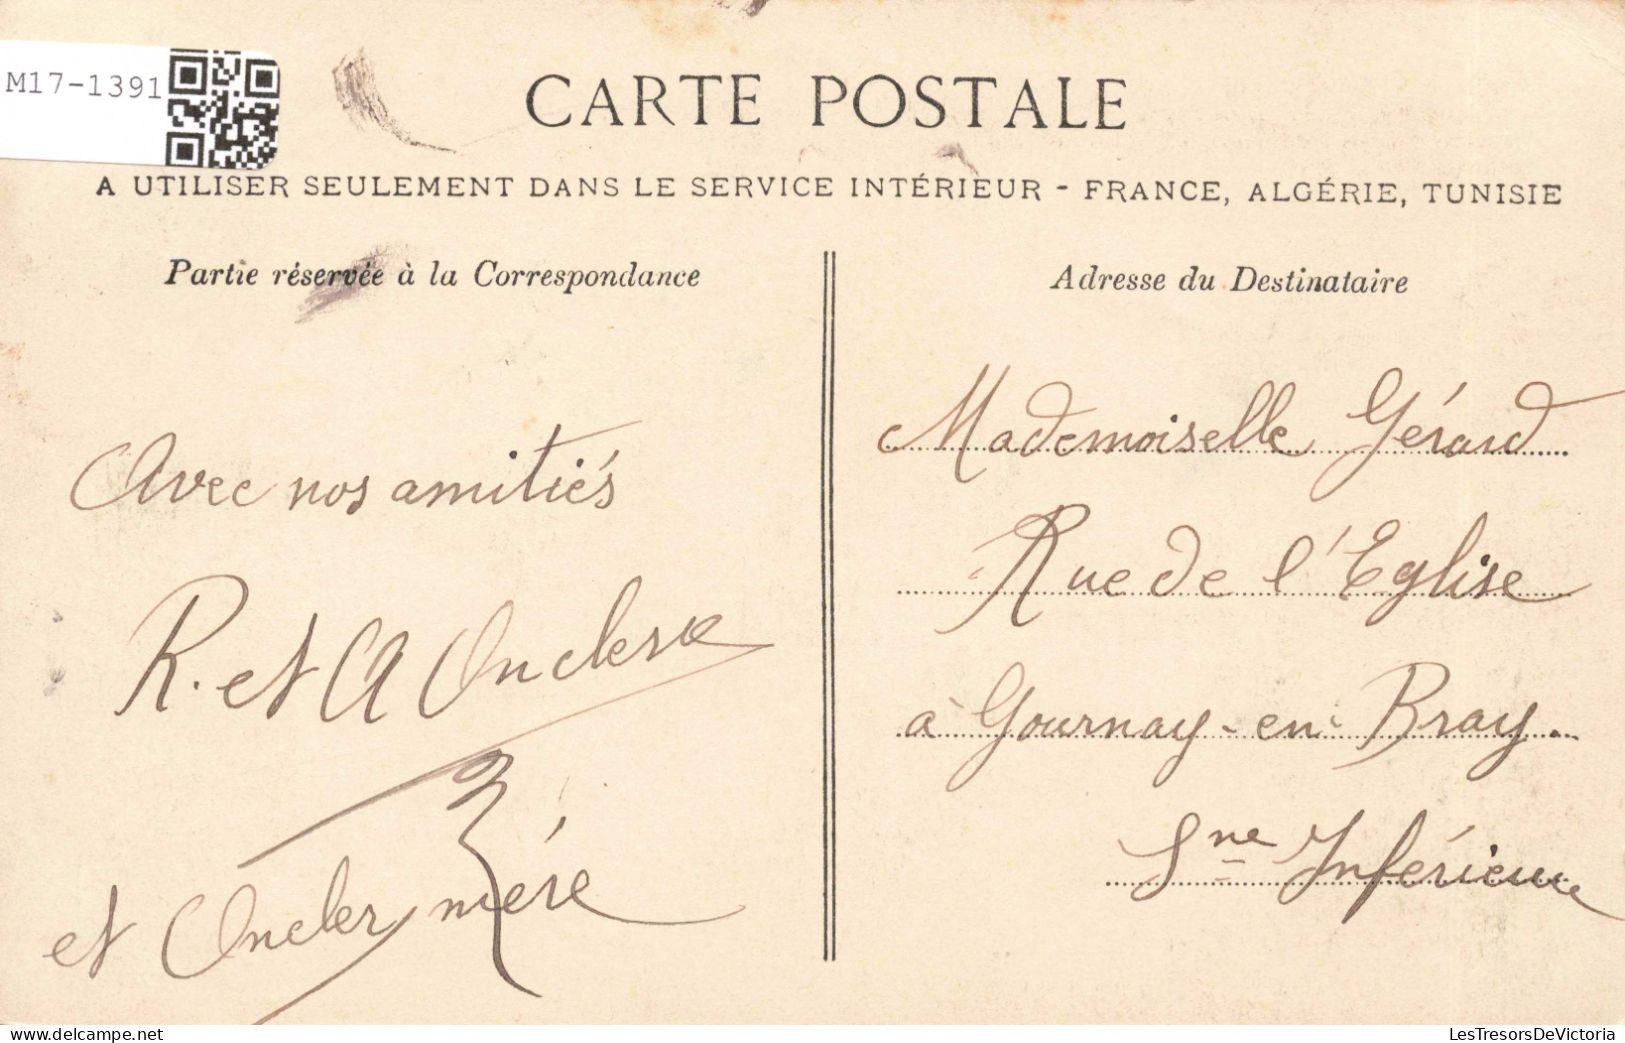 M17-1391
CARTE POSTALE
A UTILISER SEULEMENT DANS LE SERVICE INTÉRIEUR - FRANCE, ALGÉRIE, TUNISIE
Partie réservée à la Correspondance
Avec nos amitiés
R. et A
et mére
Adresse du Destinataire
Mademoiselle Gérard
Rue de l'Eglise
à Gournay-en-Bray.
Sne Inférieure
delcampe.net
LesTresorsDeVictoria